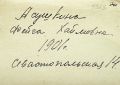 Асушкина
Фейга Хаймовна
1901г.
Севастопольская 14.